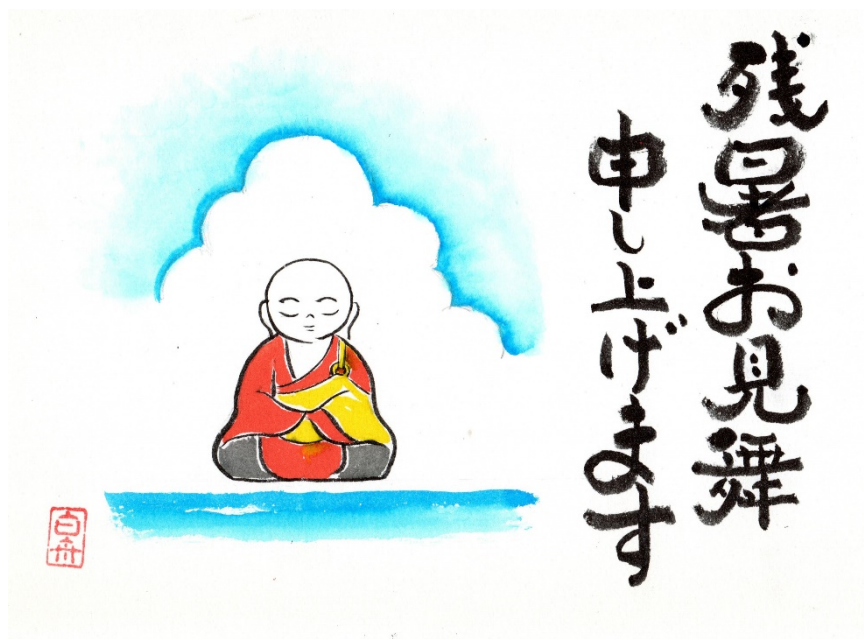 残暑お見舞
申し上げます
白舟